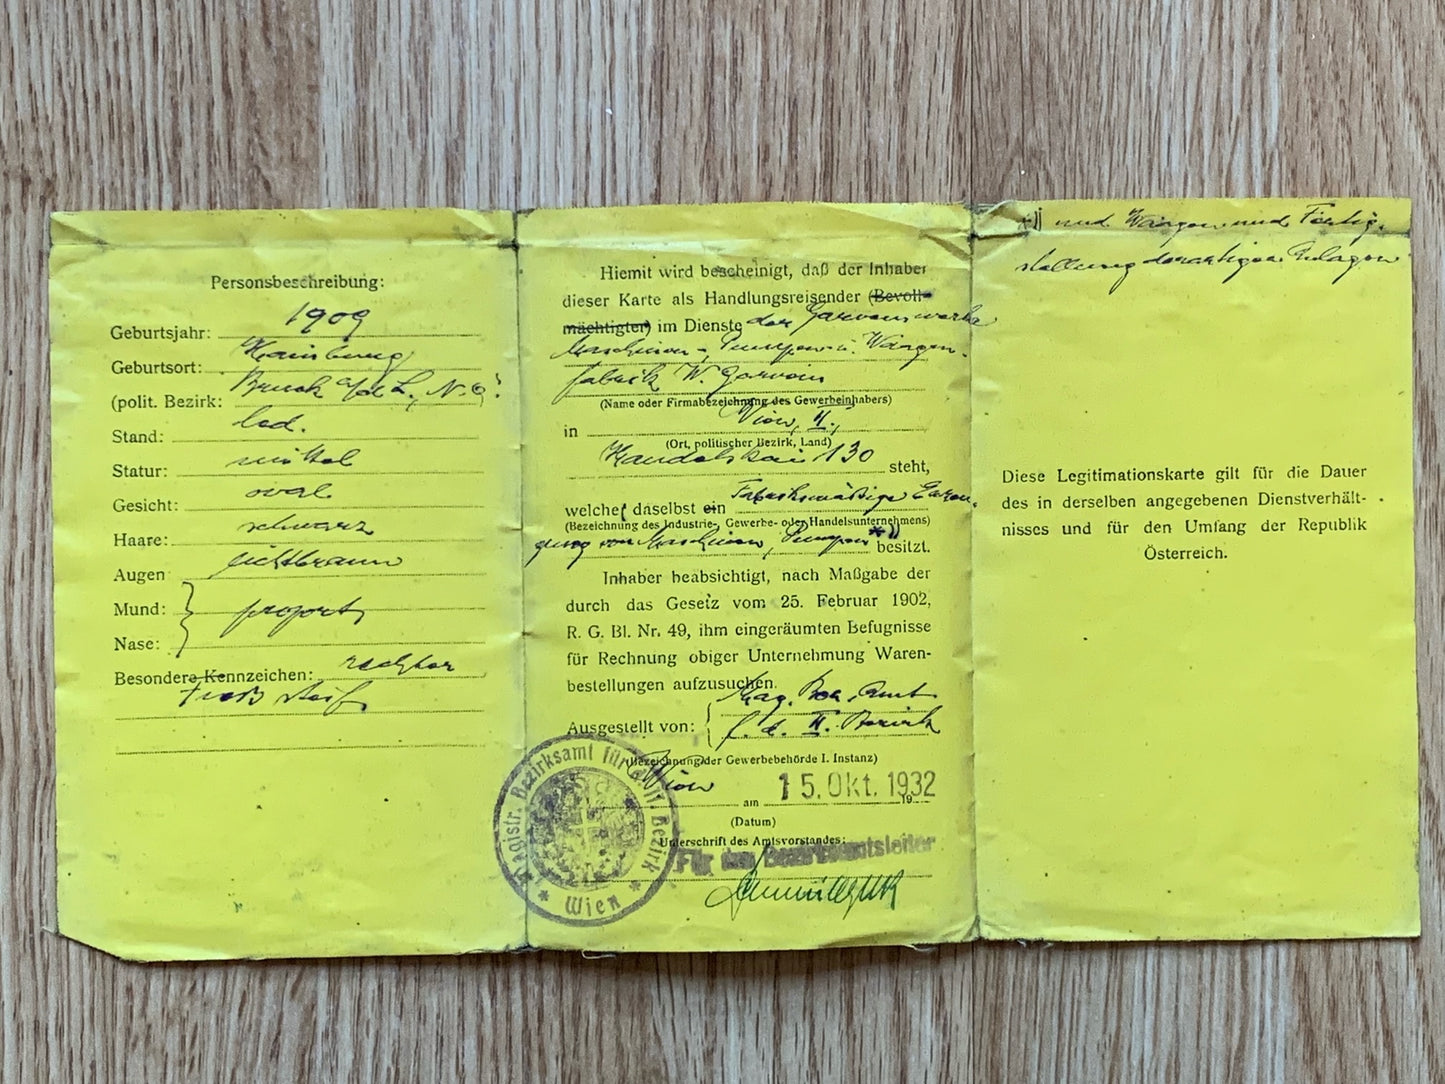 Personsbeschreibung:
Geburtsjahr: 1909
Geburtsort: Hainburg
(polit. Bezirk: Bruck a/d L., N.Ö.
Stand: led.
Statur: mittel
Gesicht: oval
Haare: schwarz
Augen lichtbraun
Mund: } proport.
Nase:
Besondere Kennzeichen: rechter
Fuß steif
Hiemit wird bescheinigt, daß der Inhaber
dieser Karte als Handlungsreisender (Bevoll-
mächtigter) im Dienste der Garvenswerke
Maschinen-, Pumpen u. Waagen-
fabrik W. Garvens
(Name oder Firmabezeichnung des Gewerbeinhabers)
in Wien, II.,
(Ort, politischer Bezirk, Land)
Handelskai 130 steht,
welche daselbst ein Fabriksmäßige Erzeu-
(Bezeichnung des Industrie-, Gewerbe- oder Handelsunternehmens)
gung von Maschinen, Pumpen *)) besitzt.
Inhaber beabsichtigt, nach Maßgabe der
durch das Gesetz vom 25. Februar 1902,
R. G. Bl. Nr. 49, ihm eingeräumten Befugnisse
für Rechnung obiger Unternehmung Waren-
bestellungen aufzusuchen.
Ausgestellt von: { Mag. Bez. Amt
f. d. II. Bezirk
(Bezeichnung der Gewerbebehörde I. Instanz)
Wien am 15. Okt. 1932
19
(Datum)
Unterschrift des Amtsvorstandes:
Für den Bezirksamtsleiter
Magistr. Bezirksamt für d. II. Bezirk
* Wien *
*)) und Waagen und Fertig-
stellung derartiger Anlagen
Diese Legitimationskarte gilt für die Dauer
des in derselben angegebenen Dienstverhält-
nisses und für den Umfang der Republik
Österreich.